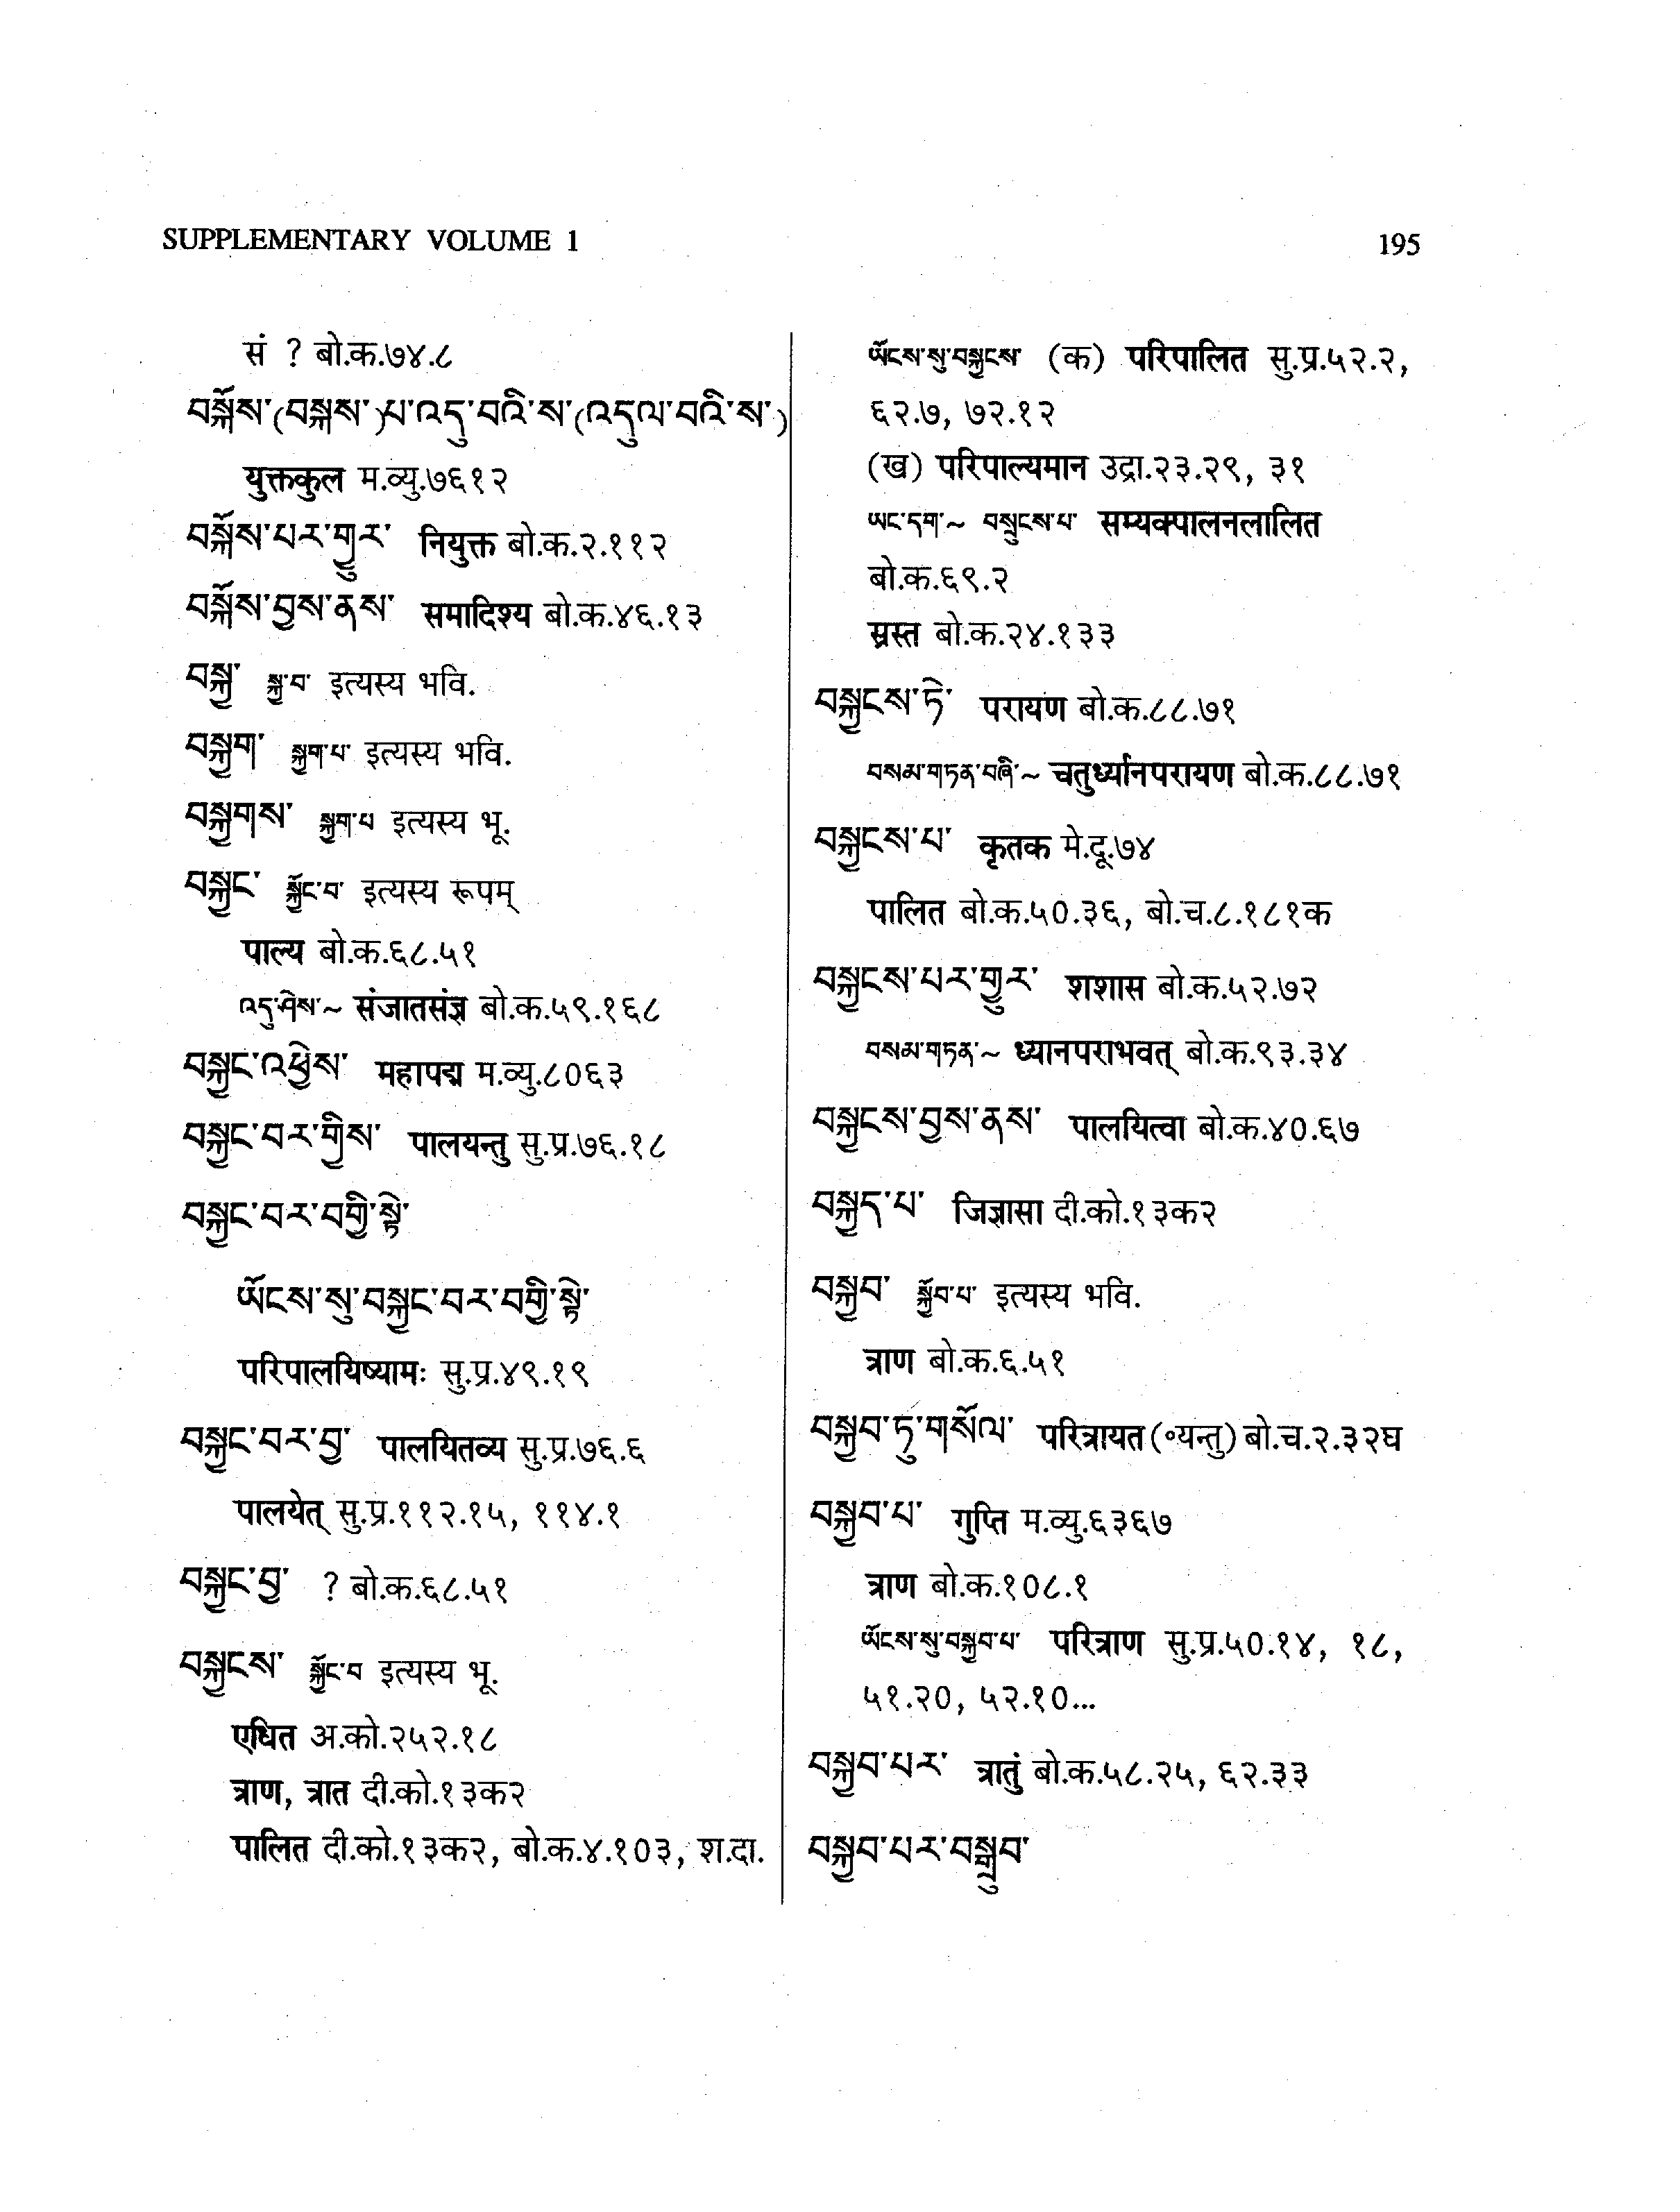 SUPPLEMENTARY VOLUME 1
195
सं ? बो.क.७४.८
བསྐོས་(བསྐས་)པ་འདུ་བའི་ས་(འདུལ་བའི་ས་)
युक्तकुल म.व्यु.७६१२
བསྐོས་པར་གྱུར་ नियुक्त बो.क.२.११२
བསྐོས་བྱས་ནས་ समादिश्य बो.क.४६.१३
བསྐྱ་ སྐྱ་བ་ इत्यस्य भवि.
བསྐྱག་ སྐྱག་པ་ इत्यस्य भवि.
བསྐྱགས་ སྐྱག་པ इत्यस्य भू.
བསྐྱང་ སྐྱོང་བ་ इत्यस्य रूपम्
पाल्य बो.क.६८.५१
འདུ་ཤེས་~ संजातसंज्ञ बो.क.५९.१६८
བསྐྱང་འཕྱེས་ महापद्म म.व्यु.८०६३
བསྐྱང་བར་གྱིས་ पालयन्तु सु.प्र.७६.१८
བསྐྱང་བར་བགྱི་སྟེ་
ཡོངས་སུ་བསྐྱང་བར་བགྱི་སྟེ་
परिपालयिष्यामः सु.प्र.४९.१९
བསྐྱང་བར་བྱ་ पालयितव्य सु.प्र.७६.६
पालयेत् सु.प्र.११२.१५, ११४.१
བསྐྱང་བྱ་ ? बो.क.६८.५१
བསྐྱངས་ སྐྱོང་བ इत्यस्य भू.
एधित अ.को.२५२.१८
त्राण, त्रात दी.को.१३क२
पालित दी.को.१३क२, बो.क.४.१०३, श.दा.
ཡོངས་སུ་བསྐྱངས་ (क) परिपालित सु.प्र.५२.२,
६२.७, ७२.१२
(ख) परिपाल्यमान उद्रा.२३.२९, ३१
ཡང་དག་~ བསྲུངས་པ་ सम्यक्पालनलालित
बो.क.६९.२
स्रस्त बो.क.२४.१३३
བསྐྱངས་ཏེ་ परायण बो.क.८८.७१
བསམ་གཏན་བཞི་~ चतुर्ध्यानपरायण बो.क.८८.७१
བསྐྱངས་པ་ कृतक मे.दू.७४
पालित बो.क.५०.३६, बो.च.८.१८१क
བསྐྱངས་པར་གྱུར་ शशास बो.क.५२.७२
བསམ་གཏན་~ ध्यानपराभवत् बो.क.९३.३४
བསྐྱངས་བྱས་ནས་ पालयित्वा बो.क.४०.६७
བསྐྱད་པ་ जिज्ञासा दी.को.१३क२
བསྐྱབ་ སྐྱོབ་པ་ इत्यस्य भवि.
त्राण बो.क.६.५१
བསྐྱབ་ཏུ་གསོལ་ परित्रायत(॰यन्तु)बो.च.२.३२घ
བསྐྱབ་པ་ गुप्ति म.व्यु.६३६७
त्राण बो.क.१०८.१
ཡོངས་སུ་བསྐྱབ་པ་ परित्राण सु.प्र.५०.१४, १८,
५१.२०, ५२.१०...
བསྐྱབ་པར་ त्रातुं बो.क.५८.२५, ६२.३३
བསྐྱབ་པར་བསྒྲུབ་